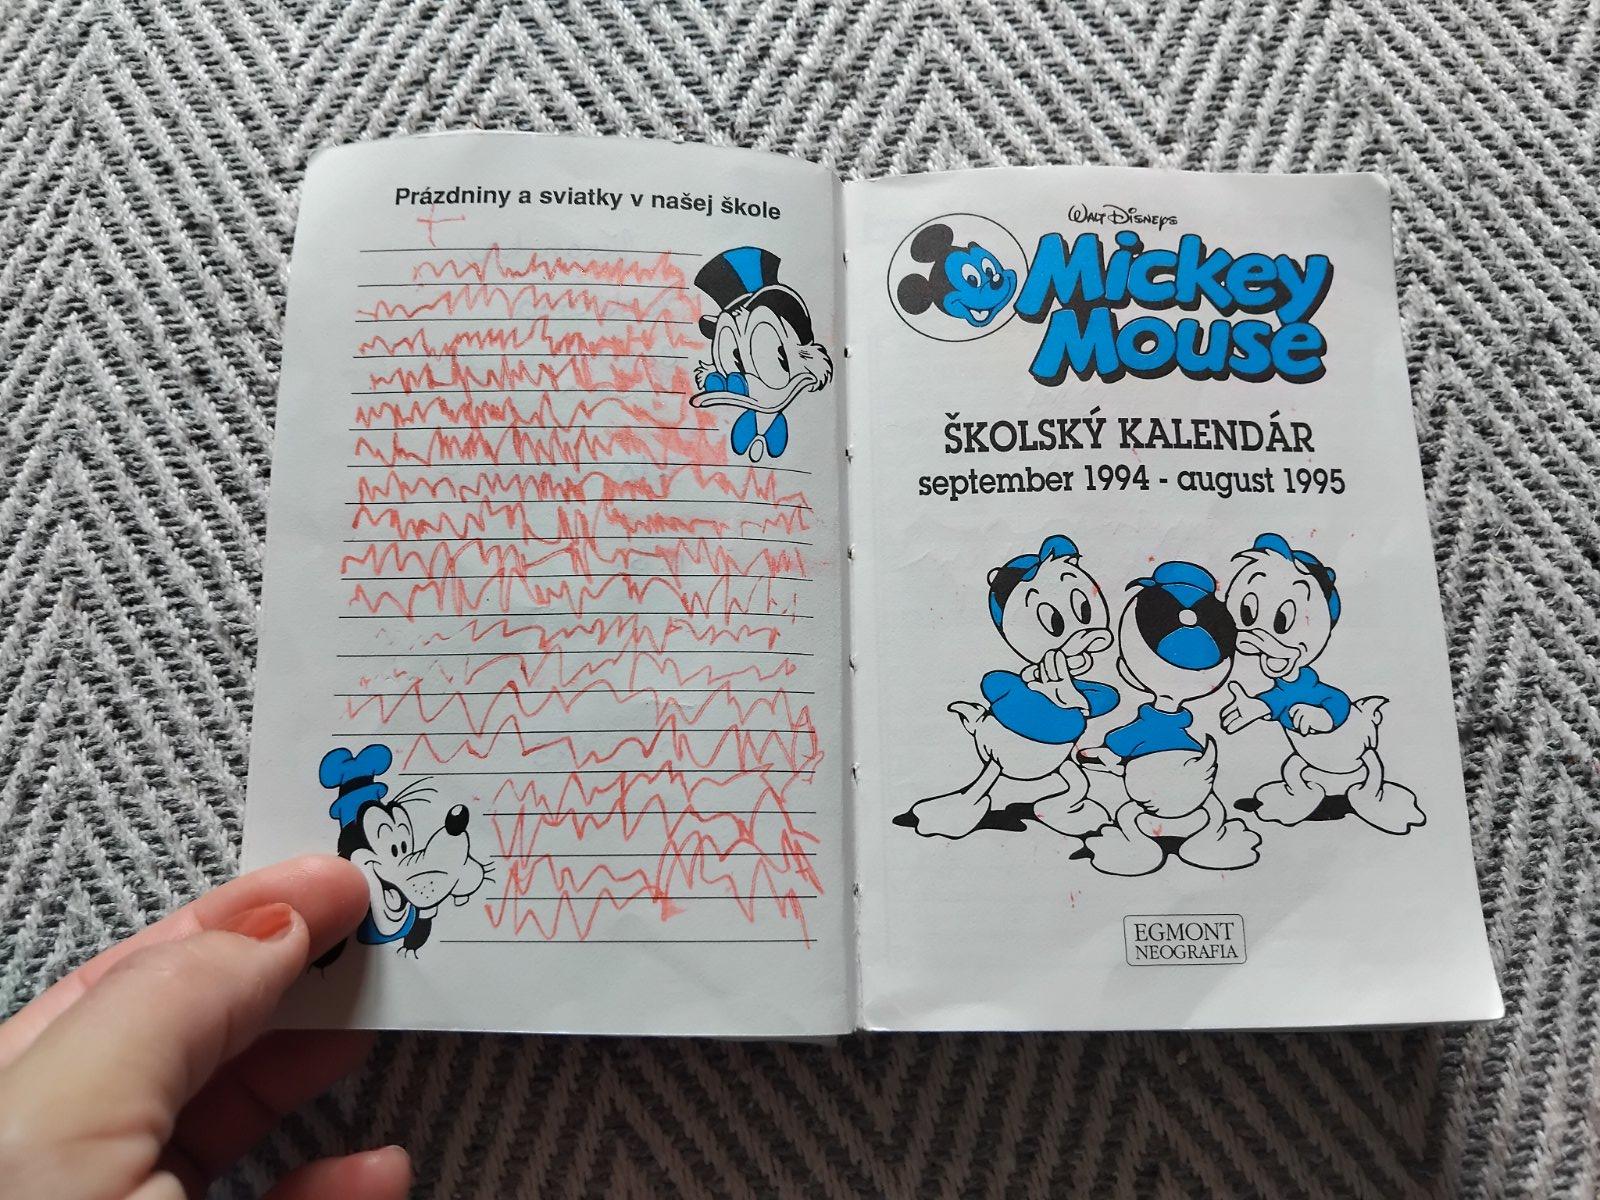 Prázdniny a sviatky v našej škole
WALT DISNEYS
Mickey
Mouse
ŠKOLSKÝ KALENDÁR
september 1994 - august 1995
EGMONT
NEOGRAFIA